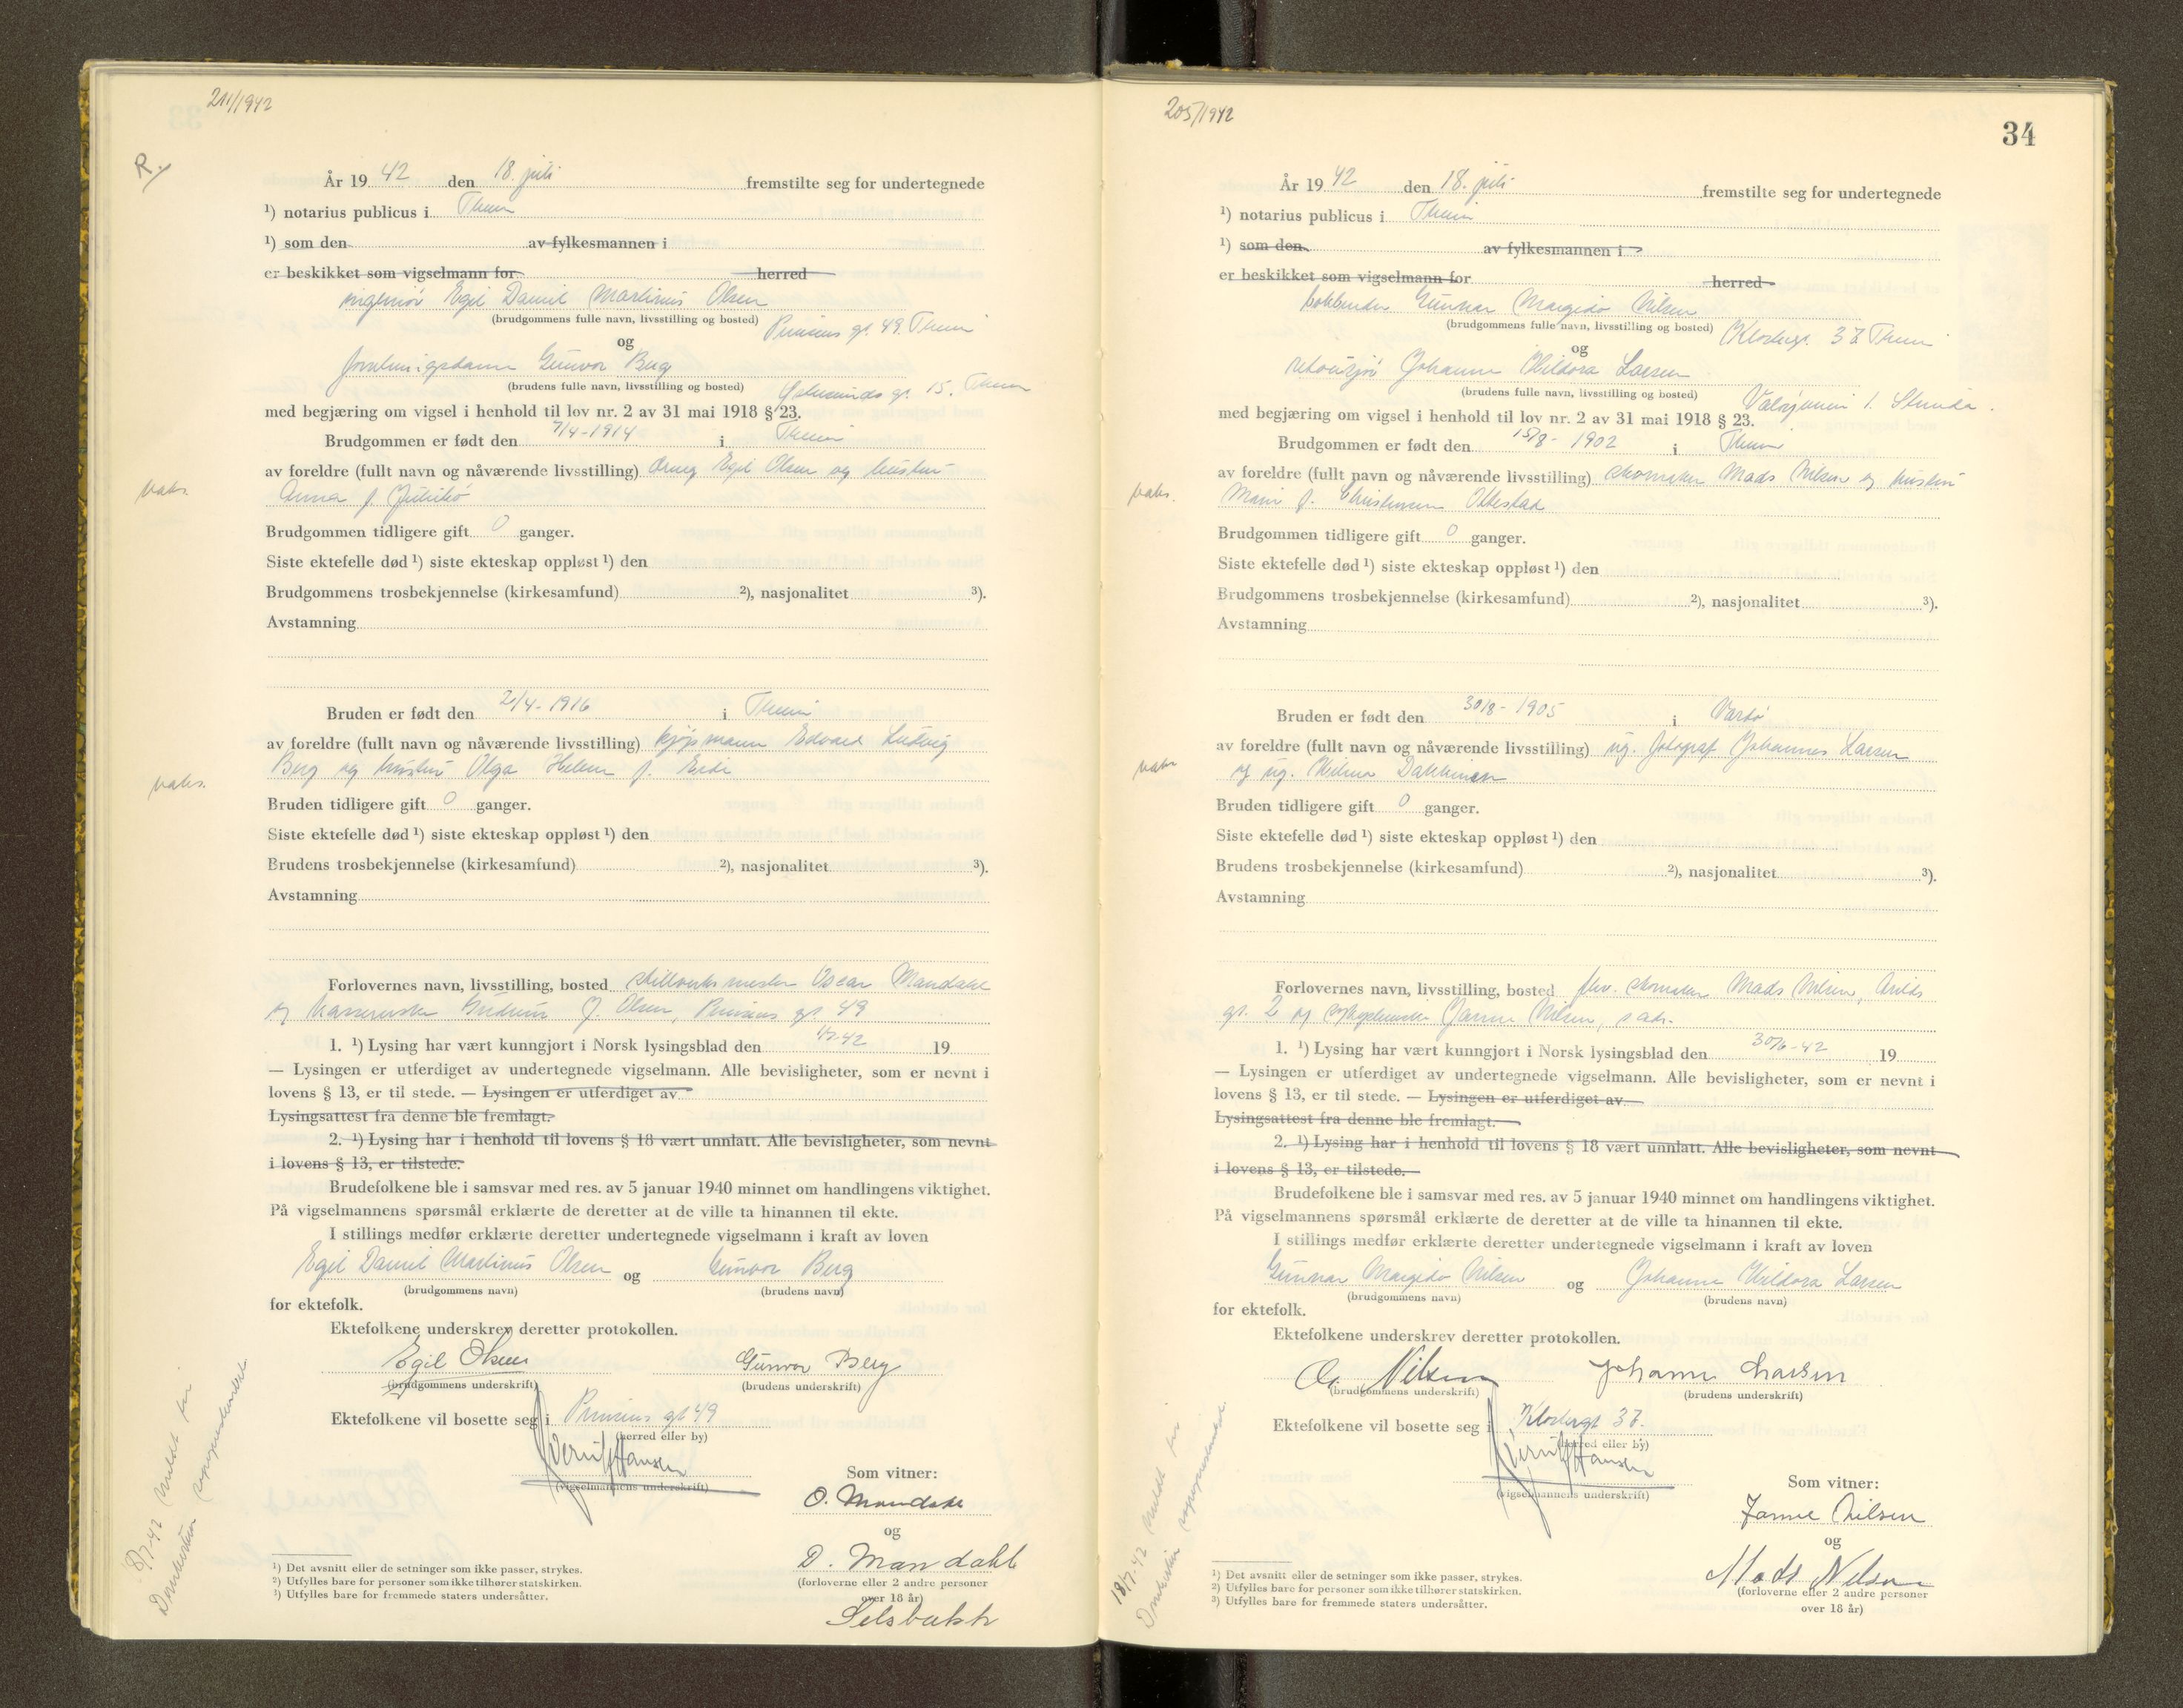 211/1942
R.
År 19 42 den 18. juli fremstilte seg for undertegnede
¹) notarius publicus i Thum
¹) som den av fylkesmannen i
er beskikket som vigselmann for herred
ingeniör Egil Daniel Martinius Olsen
(brudgommens fulle navn, livsstilling og bosted) Prinsens gt. 49.
og
Gunvor Berg
(brudens fulle navn, livsstilling og bosted) gt. 15.
med begjæring om vigsel i henhold til lov nr. 2 av 31 mai 1918 § 23.
Brudgommen er født den 7/4-1914 i
av foreldre (fullt navn og nåværende livsstilling) Egil Olsen og hustru
vaks.
Anna f.
Brudgommen tidligere gift 0 ganger.
Siste ektefelle død ¹) siste ekteskap oppløst ¹) den
Brudgommens trosbekjennelse (kirkesamfund) ²), nasjonalitet ³).
Avstamning
Bruden er født den 2/4-1916 i
av foreldre (fullt navn og nåværende livsstilling) kjøpmann Edvard Ludvig
Berg og hustru Olga Helene f.
vaks.
Bruden tidligere gift 0 ganger.
Siste ektefelle død ¹) siste ekteskap oppløst ¹) den
Brudens trosbekjennelse (kirkesamfund) ²), nasjonalitet ³).
Avstamning
Forlovernes navn, livsstilling, bosted Oscar Mandahl
og Gudrun J. Olsen, Prinsens gt 49
1. ¹) Lysing har vært kunngjort i Norsk lysingsblad den 19
— Lysingen er utferdiget av undertegnede vigselmann. Alle bevisligheter, som er nevnt i
lovens § 13, er til stede. — Lysingen er utferdiget av
Lysingsattest fra denne ble fremlagt.
2. ¹) Lysing har i henhold til lovens § 18 vært unnlatt. Alle bevisligheter, som nevnt
i lovens § 13, er tilstede.
Brudefolkene ble i samsvar med res. av 5 januar 1940 minnet om handlingens viktighet.
På vigselmannens spørsmål erklærte de deretter at de ville ta hinannen til ekte.
I stillings medfør erklærte deretter undertegnede vigselmann i kraft av loven
Egil Daniel Martinius Olsen og Gunvor Berg
(brudgommens navn) (brudens navn)
for ektefolk.
Ektefolkene underskrev deretter protokollen.
Egil Olsen Gunvor Berg
(brudgommens underskrift) (brudens underskrift)
Ektefolkene vil bosette seg i Prinsens gt 49
(herred eller by)
Hansen
(vigselmannens underskrift)
Som vitner:
O. Mandahl
og
D. Mandahl
(forloverne eller 2 andre personer
over 18 år)
Selsbakk
¹) Det avsnitt eller de setninger som ikke passer, strykes.
²) Utfylles bare for personer som ikke tilhører statskirken.
³) Utfylles bare for fremmede staters undersåtter.
meldt til
205/1942
34
År 19 42 den 18. juli fremstilte seg for undertegnede
¹) notarius publicus i Thum
¹) som den av fylkesmannen i
er beskikket som vigselmann for herred
Gunnar Margido Nilsen
(brudgommens fulle navn, livsstilling og bosted) Klostergt. 37
og
Johanne Hildora Larsen
(brudens fulle navn, livsstilling og bosted)
med begjæring om vigsel i henhold til lov nr. 2 av 31 mai 1918 § 23.
Brudgommen er født den 15/8-1902 i
av foreldre (fullt navn og nåværende livsstilling) skomaker Mads Nilsen og hustru
vaks.
f. Ottestad
Brudgommen tidligere gift 0 ganger.
Siste ektefelle død ¹) siste ekteskap oppløst ¹) den
Brudgommens trosbekjennelse (kirkesamfund) ²), nasjonalitet ³).
Avstamning
Bruden er født den 30/8-1905 i Vardø
av foreldre (fullt navn og nåværende livsstilling) ug. fotograf Johannes Larsen
vaks
og ug.
Bruden tidligere gift 0 ganger.
Siste ektefelle død ¹) siste ekteskap oppløst ¹) den
Brudens trosbekjennelse (kirkesamfund) ²), nasjonalitet ³).
Avstamning
Forlovernes navn, livsstilling, bosted skomaker Mads Nilsen, Arilds
gt. 2 og Nilsen,
1. ¹) Lysing har vært kunngjort i Norsk lysingsblad den 30/6-42 19
— Lysingen er utferdiget av undertegnede vigselmann. Alle bevisligheter, som er nevnt i
lovens § 13, er til stede. — Lysingen er utferdiget av
Lysingsattest fra denne ble fremlagt.
2. ¹) Lysing har i henhold til lovens § 18 vært unnlatt. Alle bevisligheter, som nevnt
i lovens § 13, er tilstede.
Brudefolkene ble i samsvar med res. av 5 januar 1940 minnet om handlingens viktighet.
På vigselmannens spørsmål erklærte de deretter at de ville ta hinannen til ekte.
I stillings medfør erklærte deretter undertegnede vigselmann i kraft av loven
Gunnar Margido Nilsen og Johanne Hildora Larsen
(brudgommens navn) (brudens navn)
for ektefolk.
Ektefolkene underskrev deretter protokollen.
Nilsen Johanne Larsen
(brudgommens underskrift) (brudens underskrift)
Ektefolkene vil bosette seg i Klostergt 37.
(herred eller by)
Hansen
(vigselmannens underskrift)
Som vitner:
Nilsen
og
Mads Nilsen
(forloverne eller 2 andre personer
over 18 år)
¹) Det avsnitt eller de setninger som ikke passer, strykes.
²) Utfylles bare for personer som ikke tilhører statskirken.
³) Utfylles bare for fremmede staters undersåtter.
18/7-42 meldt til